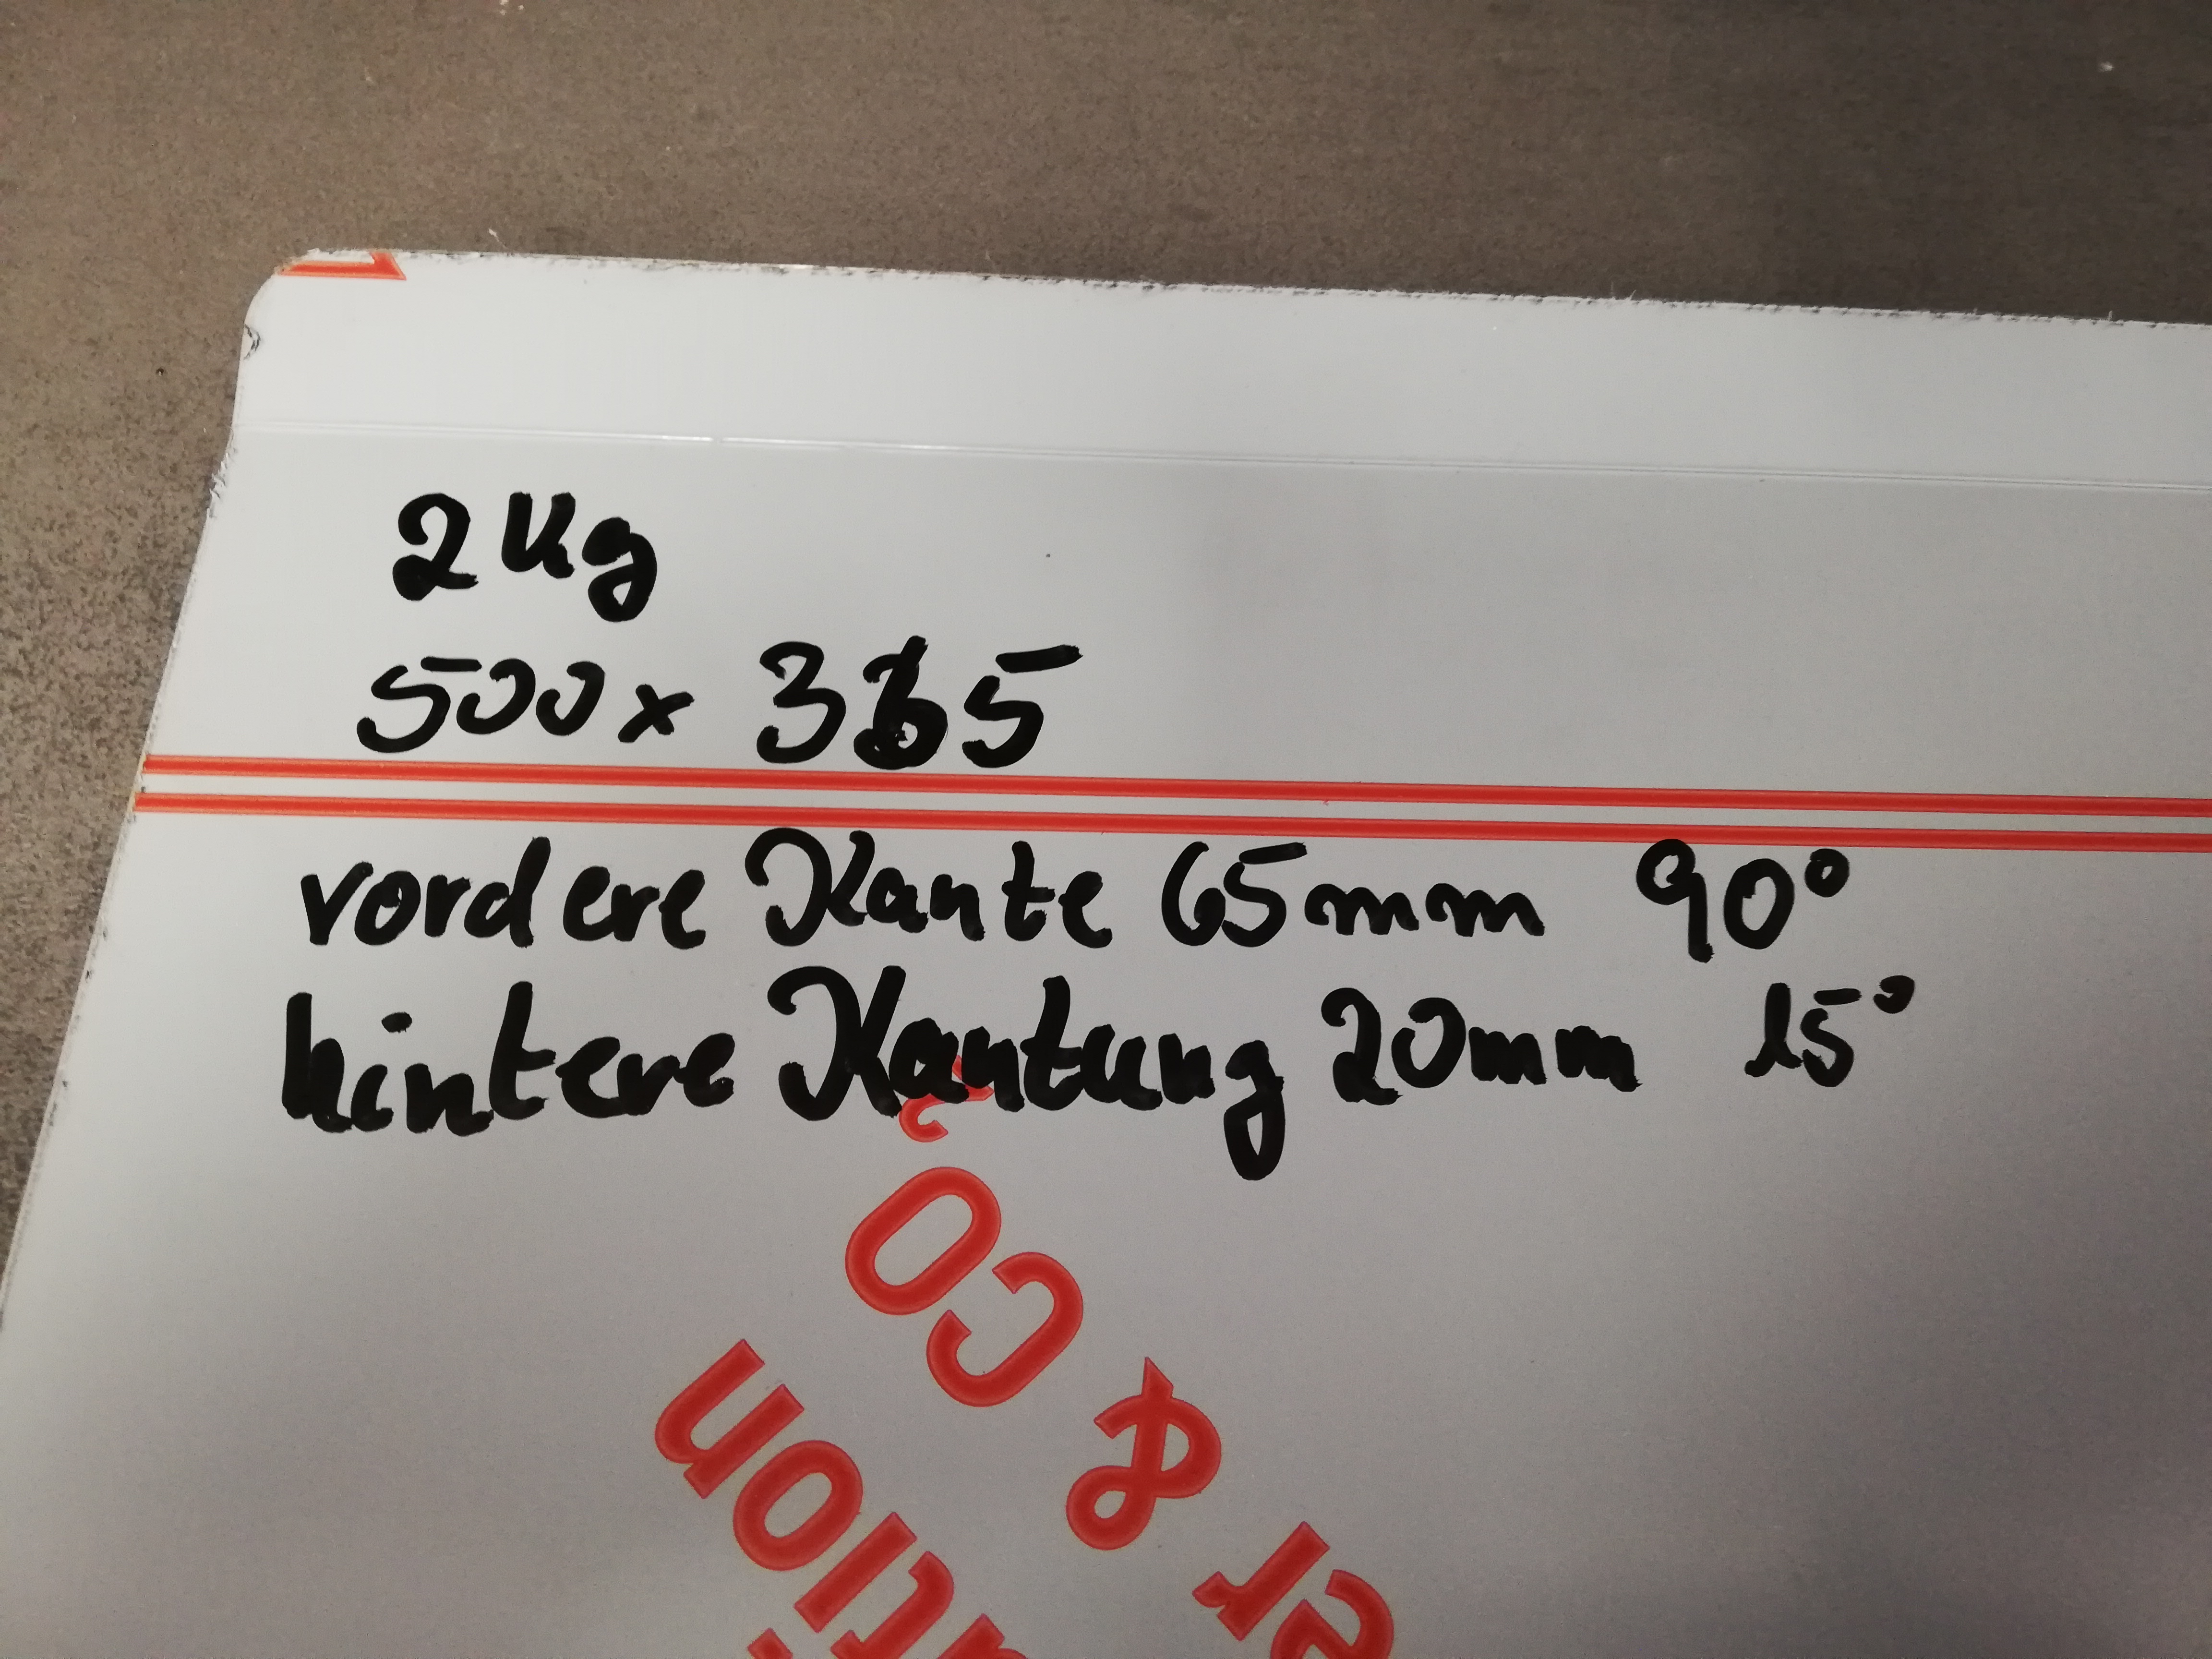 2 Kg
500 x 365
vordere Kante 65mm 90°
hintere Kantung 20mm 15°
& CO